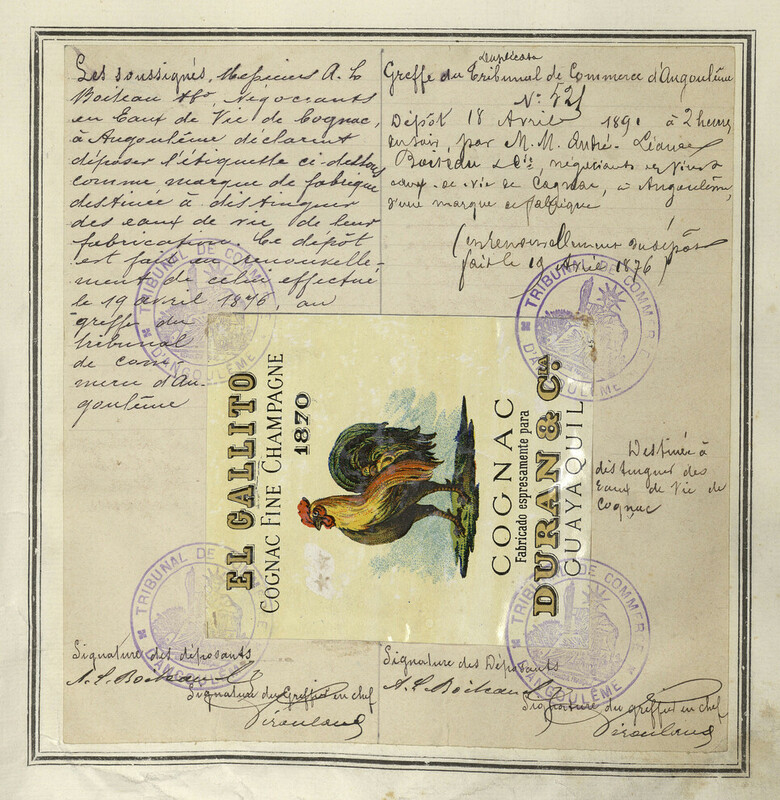 Les soussignés, Messieurs A. L.
Boiteau & Cie, Négociants
en Eaux de Vie de Cognac,
à Angoulême déclarent
déposer l'étiquette ci-dessous
comme marque de fabrique
destinée à distinguer
des eaux de vie de leur
fabrication. Ce dépôt
est fait en renouvelle-
ment de celui effectué
le 19 avril 1876, au
greffe du
tribunal
de com-
merce d'An-
goulême
Duplicata
Greffe du Tribunal de Commerce d'Angoulême
N° 521
Dépôt 18 Avril 189 à 2 heures
du soir, par M.M. André-
Boiteau & Cie, négociants
eaux-de-vie de Cognac, à Angoulême,
d'une marque de fabrique
(en renouvellement du dépôt
fait le 19 Avril 1876)
TRIBUNAL DE COMMERCE
D'ANGOULÊME
TRIBUNAL DE COMMERCE
D'ANGOULÊME
EL GALLITO
COGNAC FINE CHAMPAGNE
1870
COGNAC
Fabricado espresamente para
DURAN & CRA.
GUAYAQUIL
Destinée à
distinguer des
Eaux de Vie de
Cognac
TRIBUNAL DE COMMERCE
D'ANGOULÊME
TRIBUNAL DE COMMERCE
D'ANGOULÊME
Signature des déposants
A. L. Boiteau
Signature du Greffier en chef
Signature des Déposants
A. L. Boiteau
Signature du greffier en chef